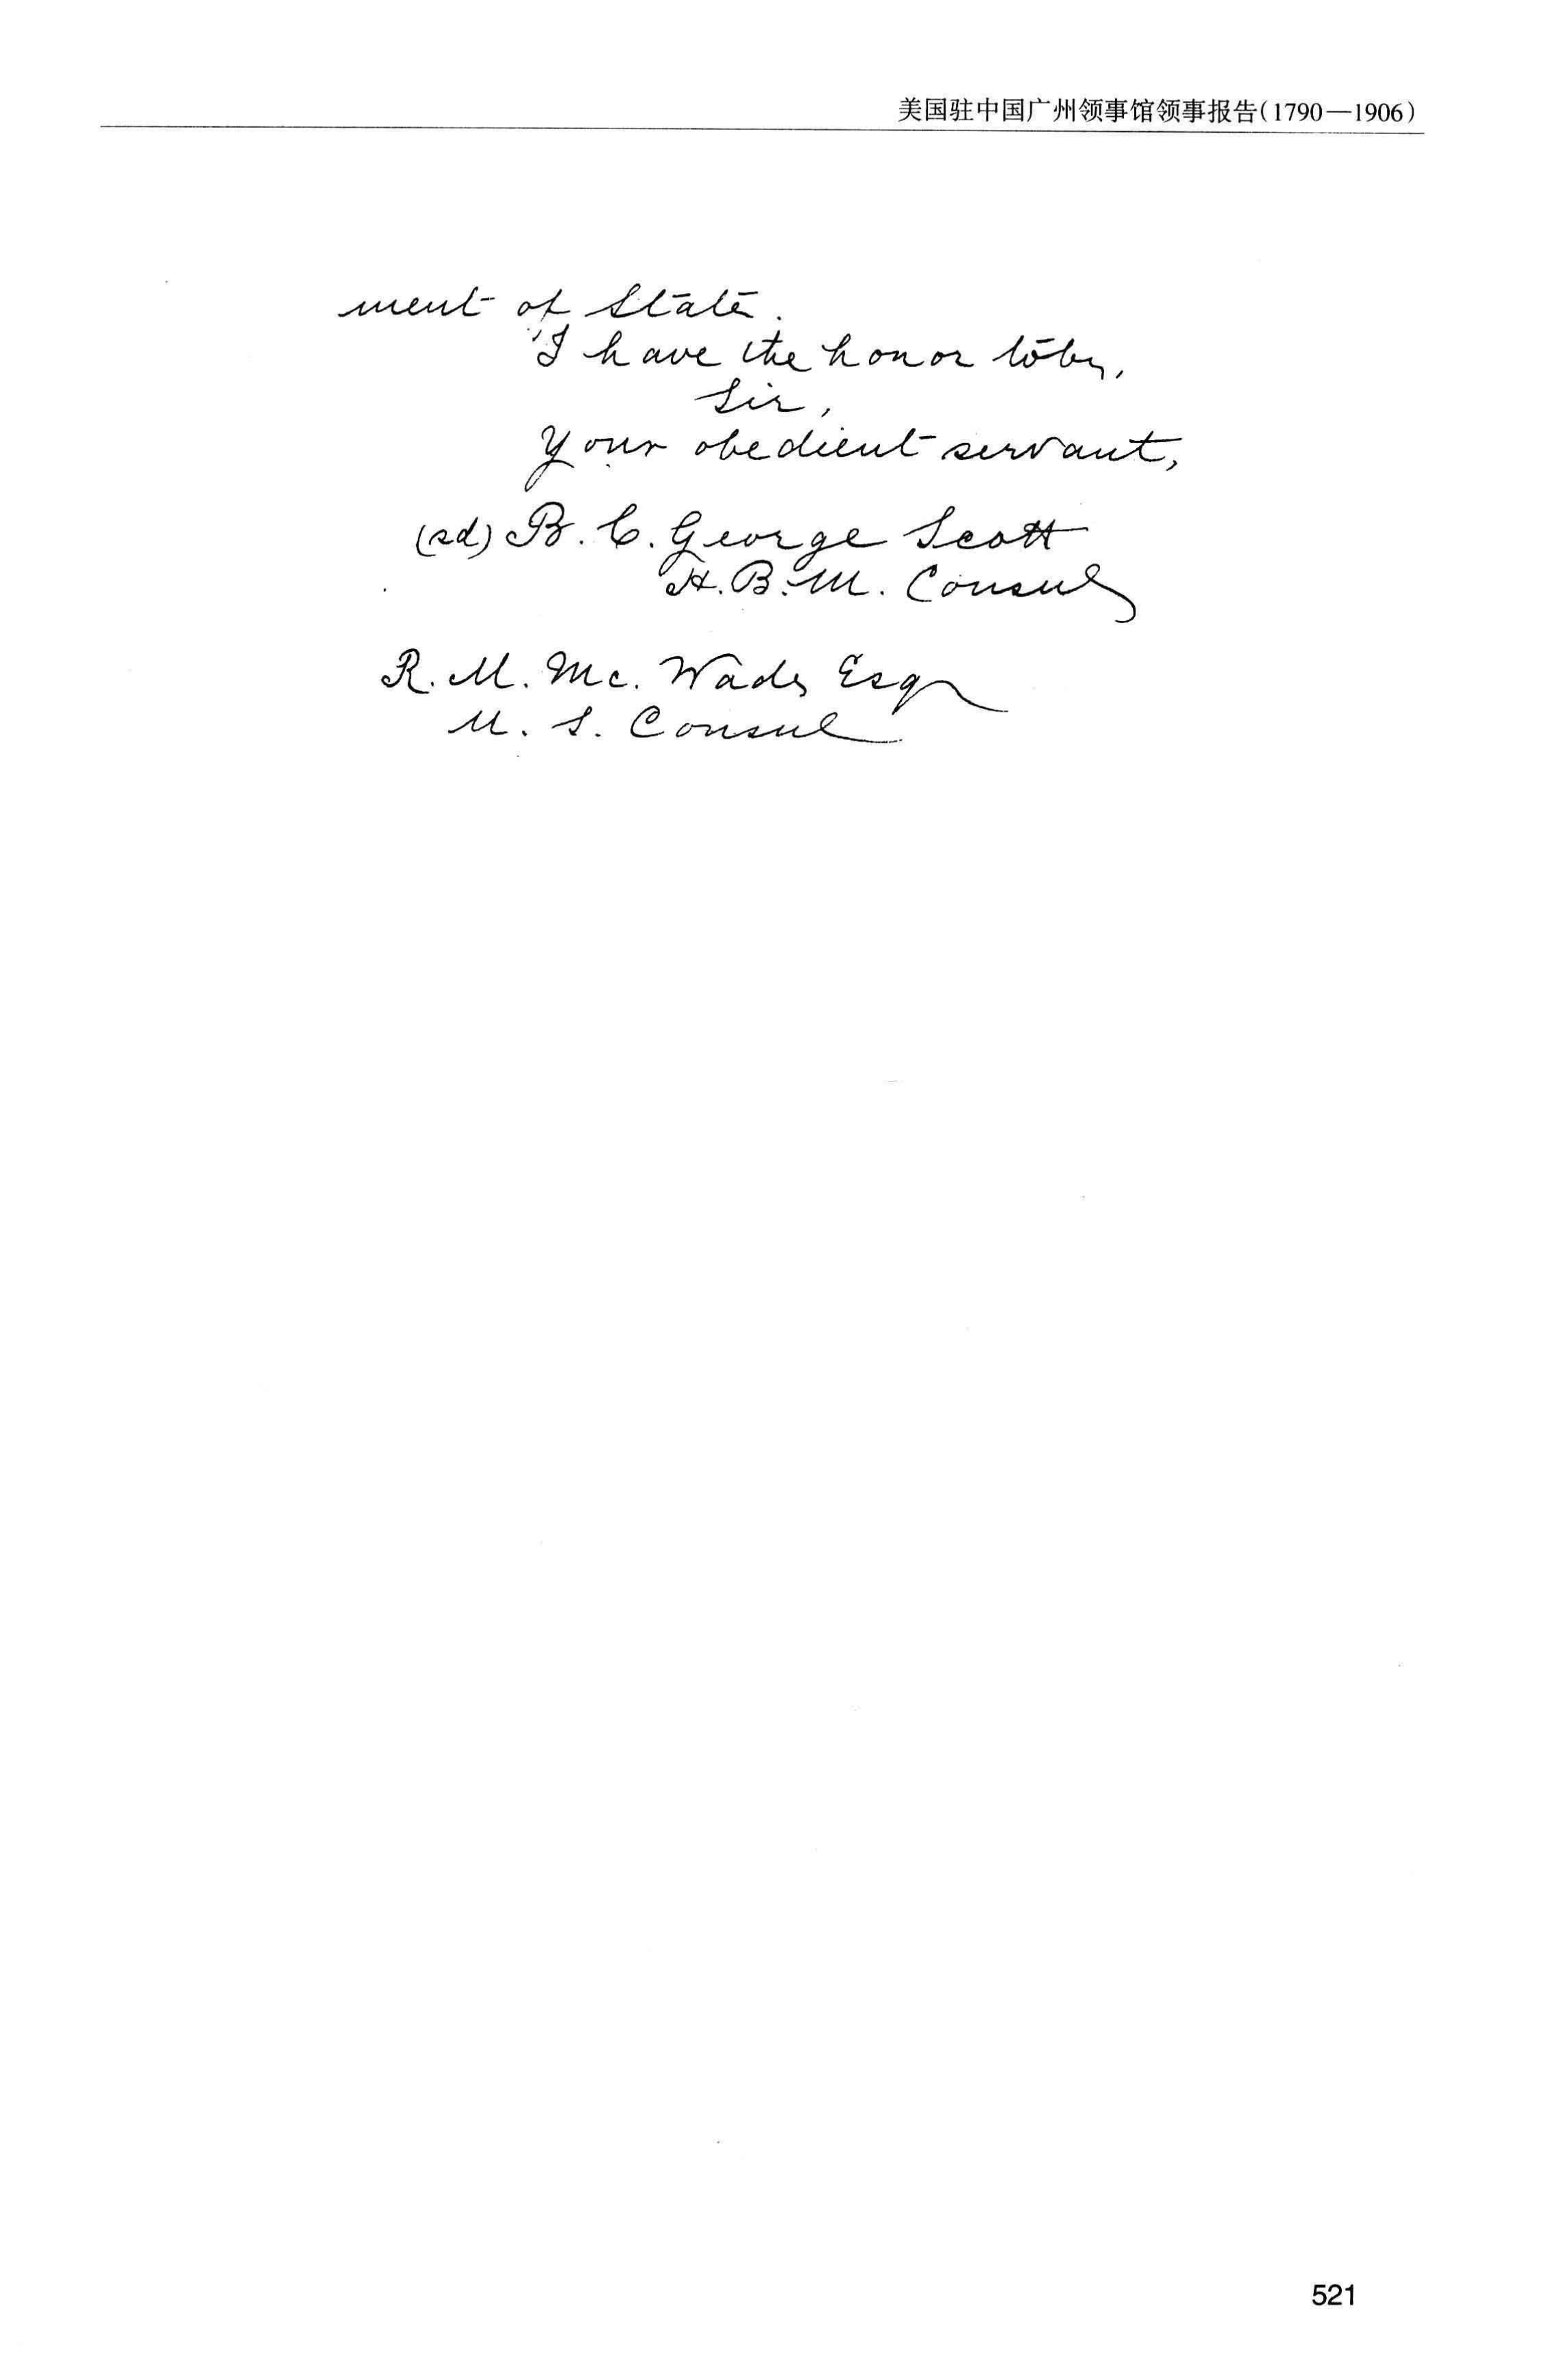 美国驻中国广州领事馆领事报告(1790—1906)
ment of State.
I have the honor to be,
Sir,
Your obedient servant,
(sd) B. C. George Scott
H. B. M. Consul
R. M. Mc. Wade Esq
U. S. Consul
521